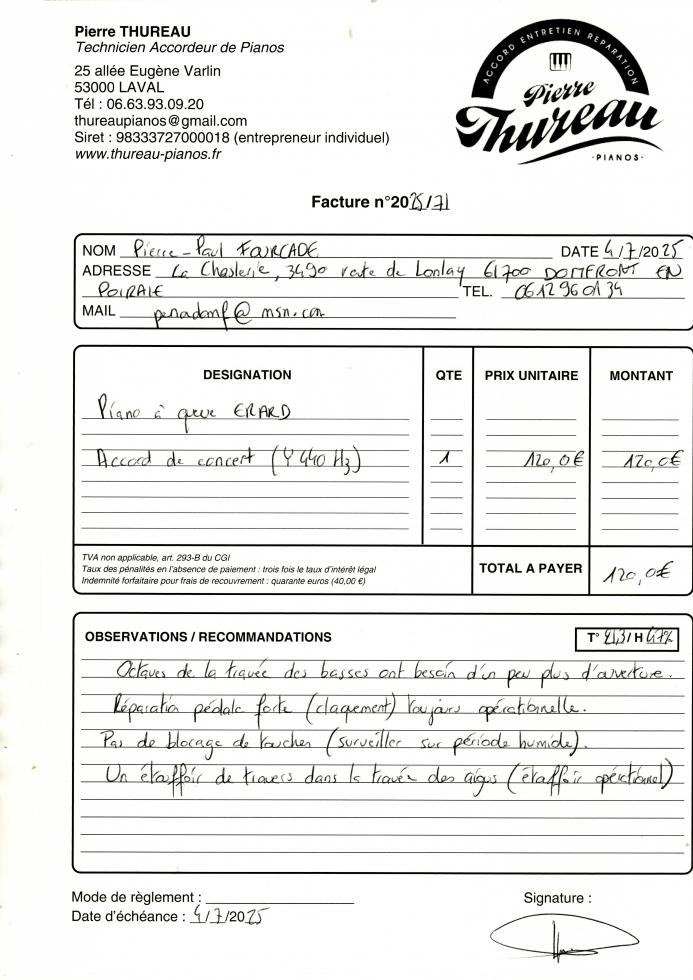 Pierre THUREAU
Technicien Accordeur de Pianos
25 allée Eugène Varlin
53000 LAVAL
Tél : 06.63.93.09.20
thureaupianos@gmail.com
Siret : 98333727000018 (entrepreneur individuel)
www.thureau-pianos.fr
ACCORD ENTRETIEN REPARATION
Pierre
Thureau
·PIANOS·
Facture n°2025/71
NOM Pierre-Paul FOURCADE DATE 4/7/2025
ADRESSE La Chaslerie, 3490 route de Lonlay 61700 DOMFRONT EN
POIRAIE TEL. 06 12 96 01 34
MAIL penadomf@msn.com
DESIGNATION QTE PRIX UNITAIRE MONTANT
Piano à queue ERARD
Accord de concert (440 Hz) 1 120,0€ 120,0€
TVA non applicable, art. 293-B du CGI
Taux des pénalités en l'absence de paiement : trois fois le taux d'intérêt légal
Indemnité forfaitaire pour frais de recouvrement : quarante euros (40,00 €)
TOTAL A PAYER 120,0€
OBSERVATIONS / RECOMMANDATIONS T° / H
Octaves de la travée des basses ont besoin d'un peu plus d'ouverture.
Réparation pédale forte (claquement) toujours opérationnelle.
Pas de blocage de touches (surveiller sur période humide).
Un étouffoir de travers dans la travée des aigus (étouffoir opérationnel)
Mode de règlement :
Date d'échéance : 4/7/2025
Signature :